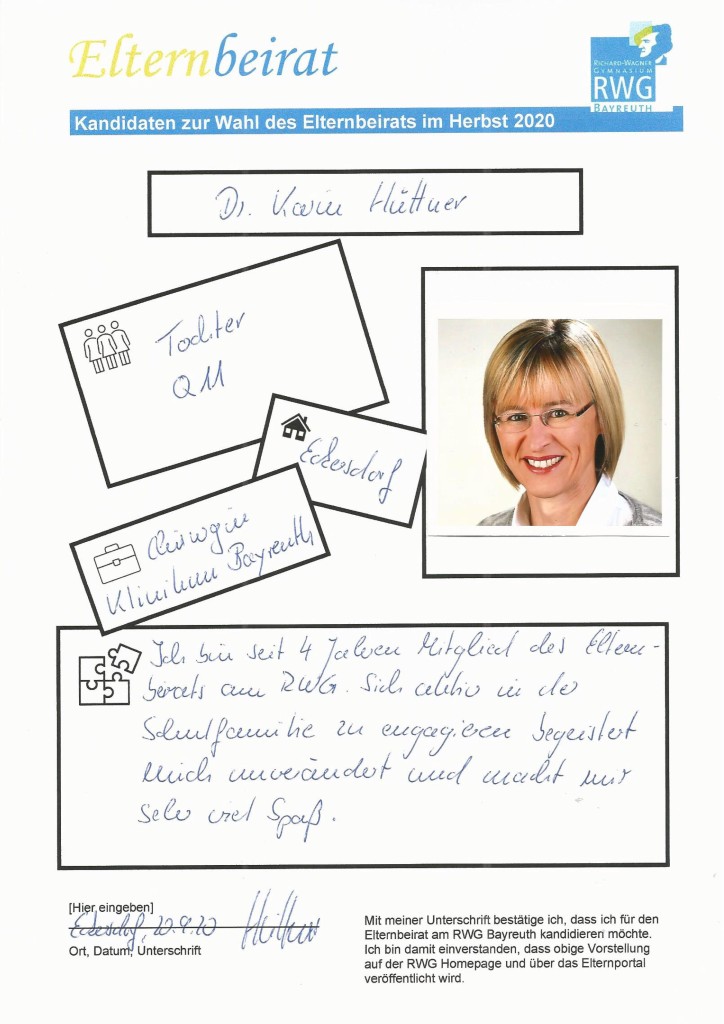 Elternbeirat
RICHARD-WAGNER
GYMNASIUM
RWG
BAYREUTH
Kandidaten zur Wahl des Elternbeirats im Herbst 2020
Dr. Karin Hüttner
Tochter
Q11
Eckersdorf
Chirurgin
Klinikum Bayreuth
Ich bin seit 4 Jahren Mitglied des Eltern-
beirats am RWG. Sich aktiv in der
Schulfamilie zu engagieren begeistert
mich unverändert und macht mir
sehr viel Spaß.
[Hier eingeben]
Eckersdorf, 20.9.20 Hüttner
Ort, Datum, Unterschrift
Mit meiner Unterschrift bestätige ich, dass ich für den
Elternbeirat am RWG Bayreuth kandidieren möchte.
Ich bin damit einverstanden, dass obige Vorstellung
auf der RWG Homepage und über das Elternportal
veröffentlicht wird.